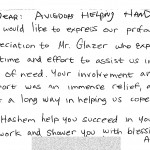 Dear: Avigdors Helping Hand
would like to express our profou
eciation to Mr. Glazer who exp
time and effort to assist us in
of need. Your involvement an
port was an immense relief, a
t a long way in helping us cope
Hashem help you succeed in your
work and shower you with blessi
A